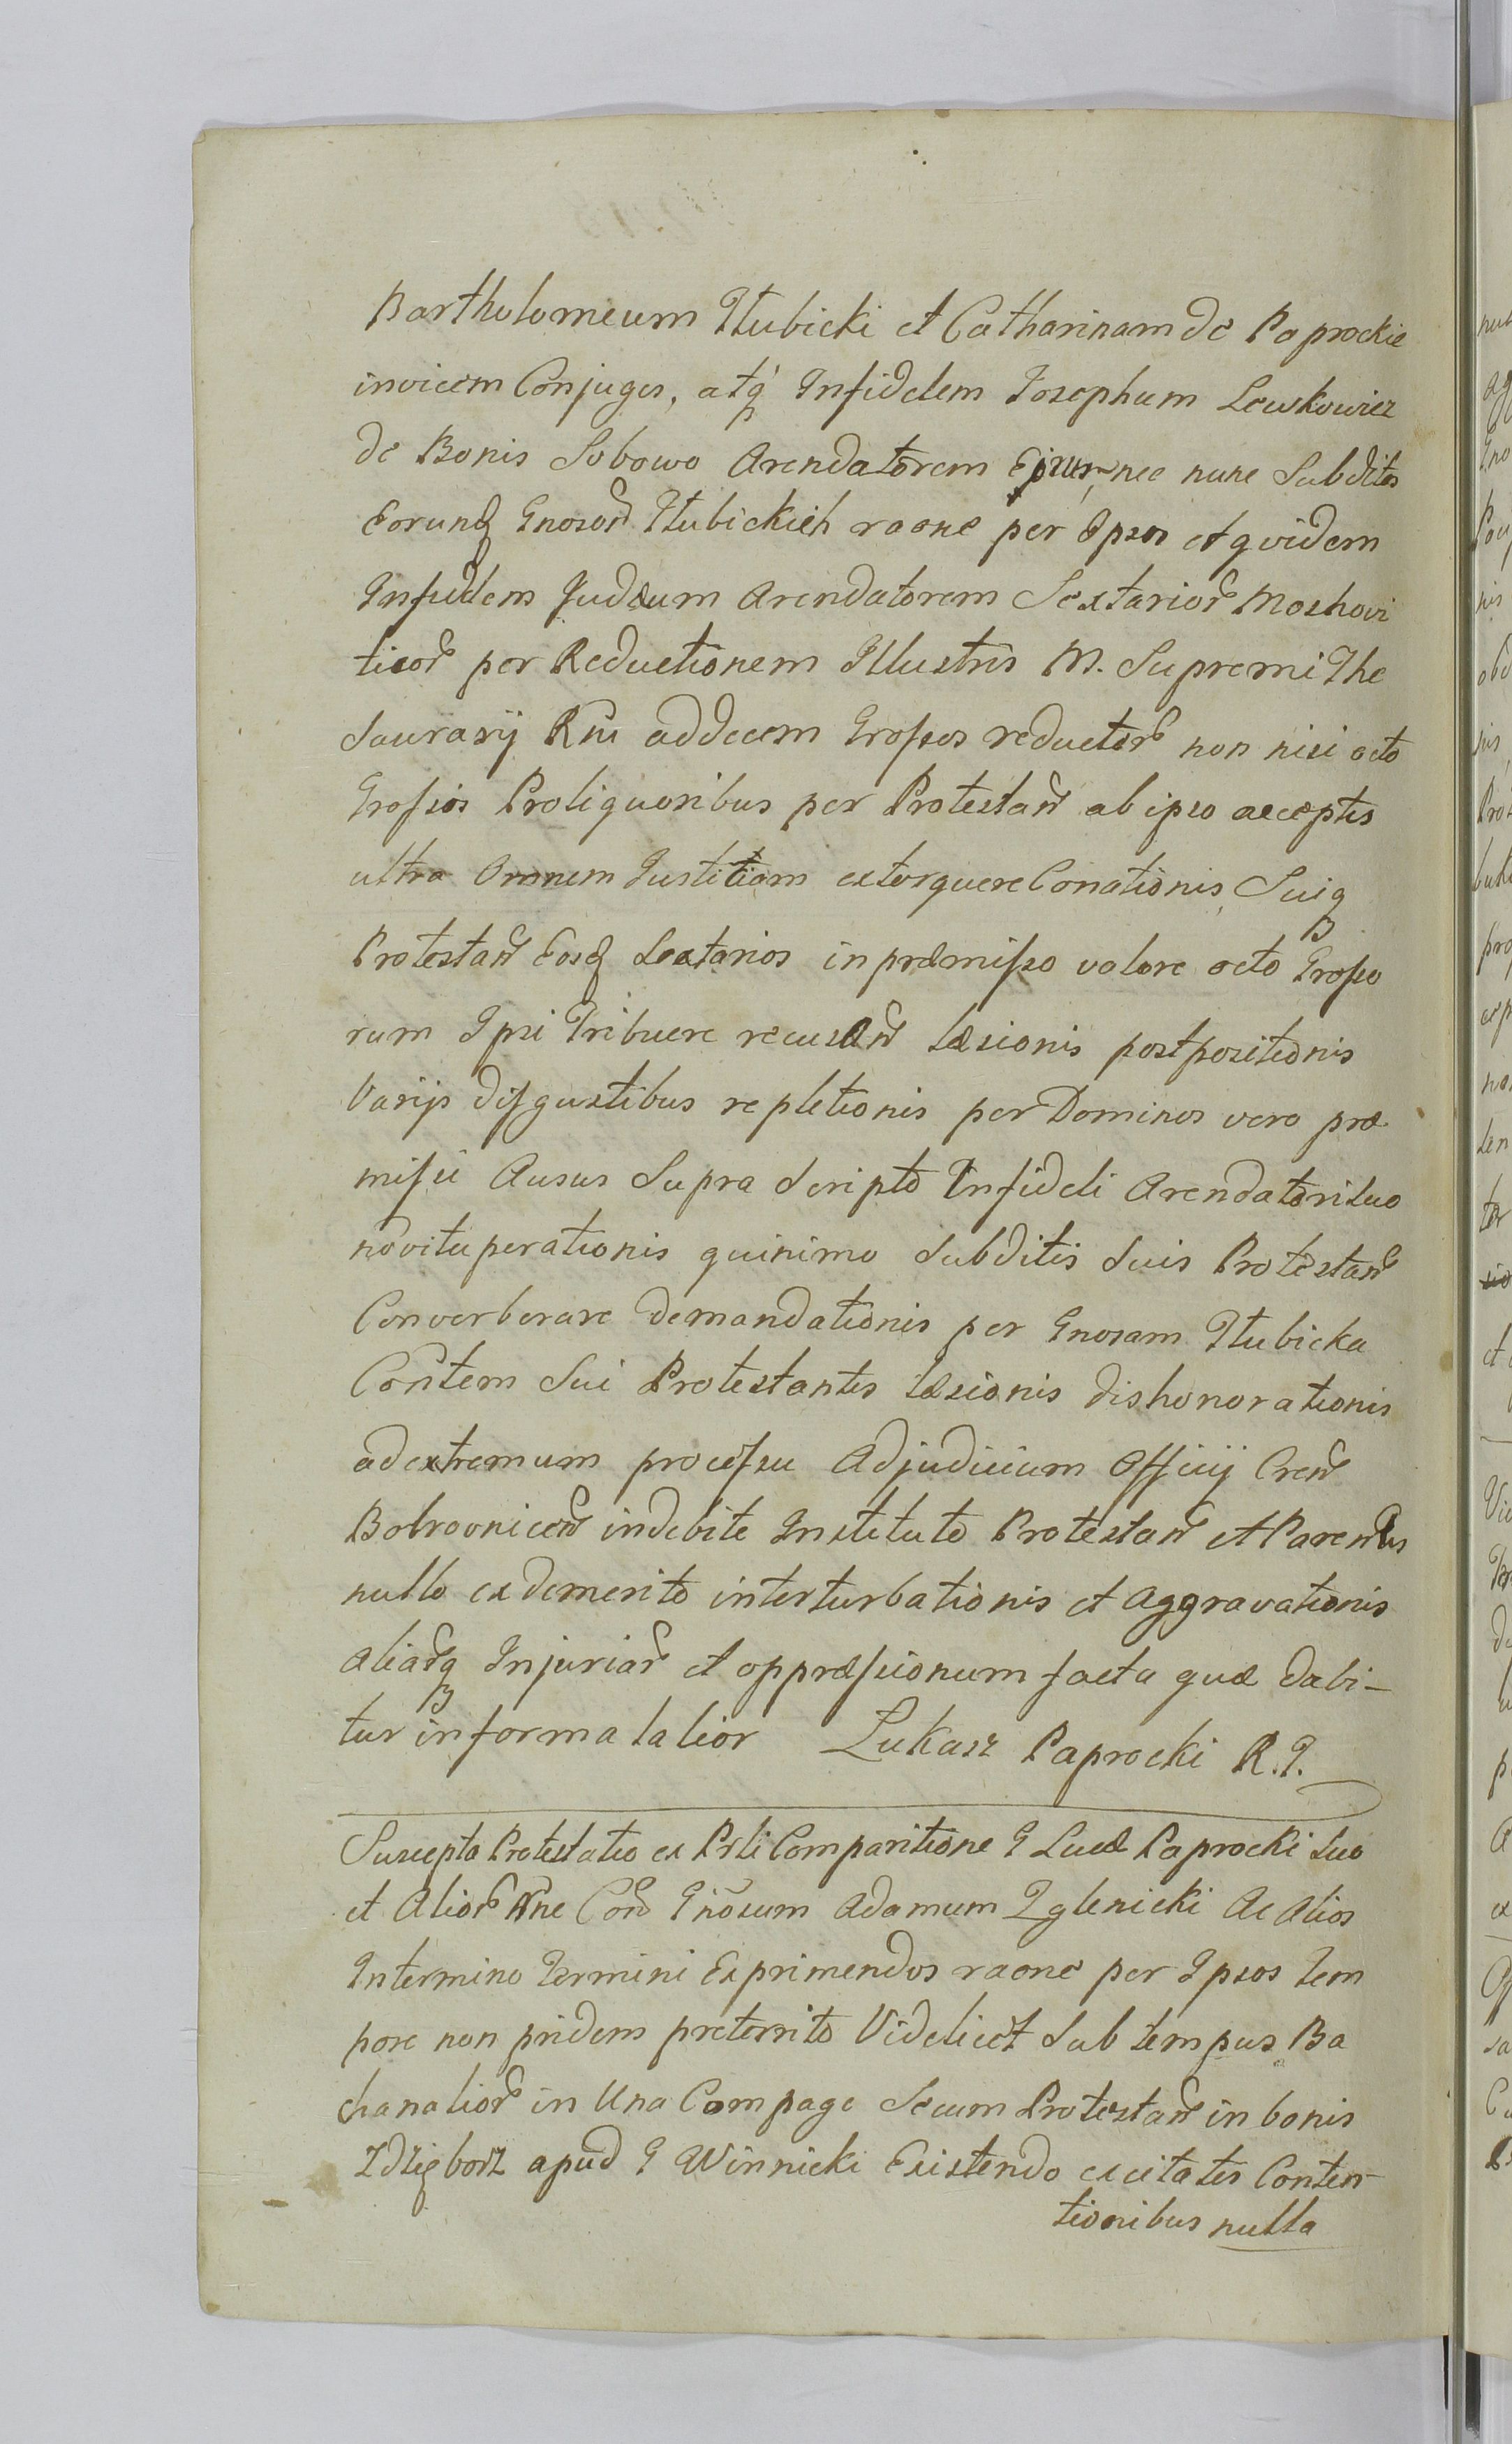 Bartholomeum Tłubicki et Catharinam de Paprockie
invicem Conjuges, atq Infidelem Josephum Lewkowicz
de Bonis Sobowo Arendatorem nec nunc Subditos
Eorund Gnosor Tłubickich raone per Ipsos et quidem
Infidelem Judæum Arendatorem Sextarior Moshovi
ticor per Reductionem Illustris M. Supremi The
saurarij Rni ad decem Grossos reductor non nisi octo
Grossios Proliquoribus per Protestan ab ipso acceptis
ultra Omnem Justitiam extorquere Conationis Suiq
Protestan Eosq Sextarios in præmisso valore octo Grosso
rum Ipsi Tribuere recusan Læsionis postpositionis
Varijs disgustibus repletionis per Dominos vero præ
missi Ausus Supra Scripto Infideli Arendatori suo
no vituperationis quinimo Subditis Suis Protestan
Converberare demandationis per Gnosam Tłubicka
Contem Sui Protestantis Læsionis dishonorationis
ad extremum processu Adjudicium Officij Cren
Bobrovnicen indebite Instituto Protestan et Parentes
nullo ex demerito interturbationis et aggravationis
aliarq Injuriar et oppræssionum facta quæ dabi-
tur in forma latior Łukasz Paprocki R.P.
Suscepta Protestatio ex Prli Comparitione G Lucæ Paprocki Suo
et Alior Nne Con Gnosum Adamum Zglenicki Ac Alios
In termino Termini Exprimendos raone per Ipsos tem
pore non pridem preterrito Videlicet Sub tempus Ba
chanalior in Una Compage Secum Protestan in bonis
Zdzięborz apud G Winnicki Existendo excitatis Conten-
tionibus nulla